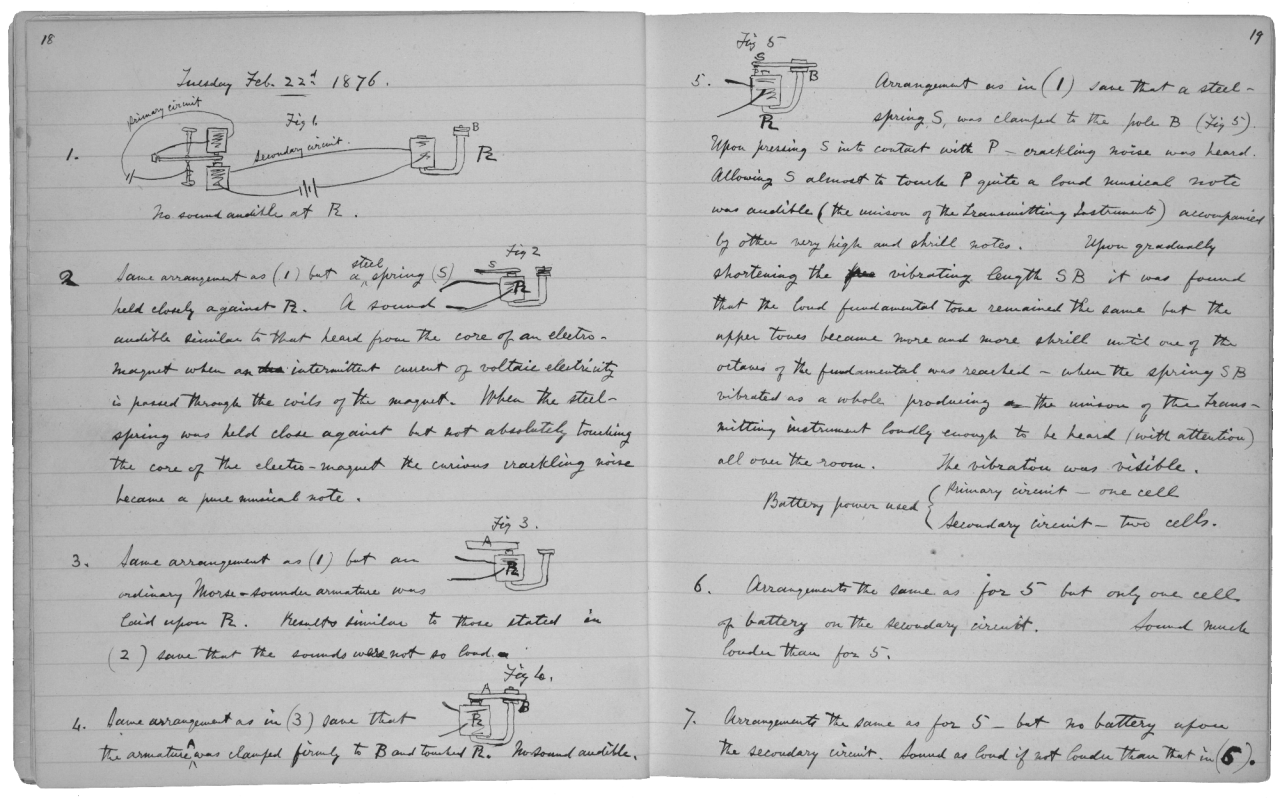 18
Tuesday Feb. 22d 1876.
Primary circuit
Fig 1.
1.
Secondary circuit.
B
No sound audible at P2.
Fig 2
S
P2
2
Same arrangement as (1) but a steel spring (S)
held closely against P2. A sound
audible similar to that heard from the core of an electro-
magnet when an intermittent current of voltaic electricity
is passed through the coils of the magnet. When the steel-
spring was held close against but not absolutely touching
the core of the electro-magnet the curious crackling noise
became a pure musical note.
Fig 3.
A
3. Same arrangement as (1) but an
ordinary Morse-sounder armature was
laid upon P2. Results similar to those stated in
(2) save that the sounds were not so loud.
Fig 4.
A
B
4. Same arrangement as in (3) save that
the armature A was clamped firmly to B and touched P2. No sound audible.
19
Fig 5
S
B
5. Arrangement as in (1) save that a steel-
spring S, was clamped to the pole B (Fig 5).
Upon pressing S into contact with P - crackling noise was heard.
Allowing S almost to touch P quite a loud musical note
was audible (the unison of the Transmitting Instrument) accompanied
by other very high and shrill notes. Upon gradually
shortening the vibrating length SB it was found
that the loud fundamental tone remained the same but the
upper tones became more and more shrill until one of the
octaves of the fundamental was reached - when the spring SB
vibrated as a whole producing the unison of the Trans-
mitting instrument loudly enough to be heard (with attention)
all over the room. The vibration was visible.
Battery power used { Primary circuit - one cell
Secondary circuit - two cells.
6. Arrangements the same as for 5 but only one cell
of battery on the secondary circuit. Sound much
louder than for 5.
7. Arrangements the same as for 5 - but no battery upon
the secondary circuit. Sound as loud if not louder than that in (6).